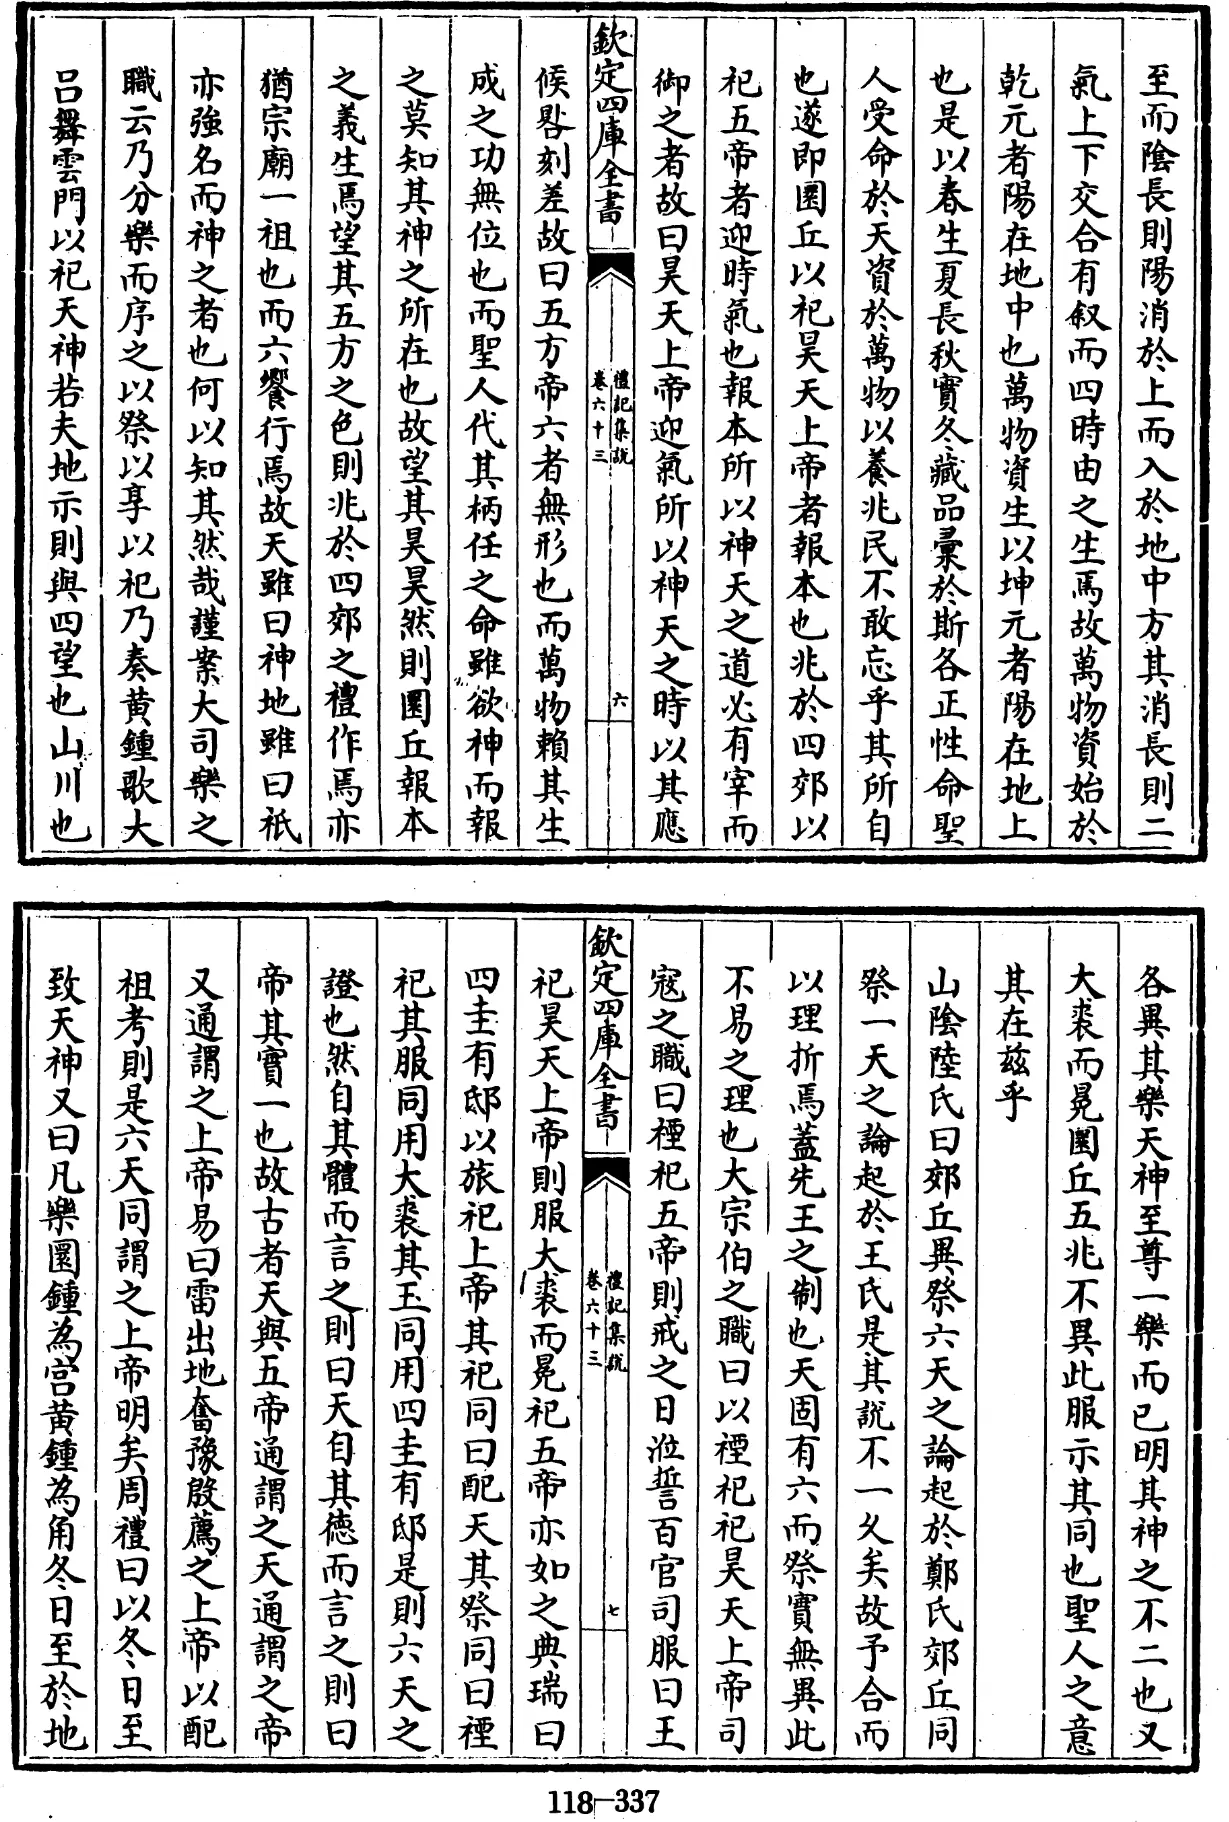 至而陰長則陽消於上而入於地中方其消長則二
氣上下交合有叙而四時由之生焉故萬物資始於
乾元者陽在地中也萬物資生以坤元者陽在地上
也是以春生夏長秋實冬藏品彚於斯各正性命聖
人受命於天資於萬物以養兆民不敢忘乎其所自
也遂即圜丘以祀昊天上帝者報本也兆於四郊以
祀五帝者迎時氣也報本所以神天之道必有宰而
御之者故曰昊天上帝迎氣所以神天之時以其應
欽定四庫全書
禮記集說
卷六十三
六
候晷刻差故曰五方帝六者無形也而萬物賴其生
成之功無位也而聖人代其柄任之命雖欲神而報
之莫知其神之所在也故望其昊昊然則圜丘報本
之義生焉望其五方之色則兆於四郊之禮作焉亦
猶宗廟一祖也而六饗行焉故天雖曰神地雖曰祇
亦強名而神之者也何以知其然哉謹案大司樂之
職云乃分樂而序之以祭以享以祀乃奏黄鍾歌大
呂舞雲門以祀天神若夫地示則與四望也山川也
各異其樂天神至尊一樂而已明其神之不二也又
大裘而冕圜丘五兆不異此服示其同也聖人之意
其在兹乎
山陰陸氏曰郊丘異祭六天之論起於鄭氏郊丘同
祭一天之論起於王氏是其說不一久矣故予合而
以理折焉蓋先王之制也天固有六而祭實無異此
不易之理也大宗伯之職曰以禋祀祀昊天上帝司
寇之職曰禋祀五帝則戒之日涖誓百官司服曰王
欽定四庫全書
禮記集說
卷六十三
七
祀昊天上帝則服大裘而冕祀五帝亦如之典瑞曰
四圭有邸以旅祀上帝其祀同曰配天其祭同曰禋
祀其服同用大裘其玉同用四圭有邸是則六天之
證也然自其體而言之則曰天自其德而言之則曰
帝其實一也故古者天與五帝通謂之天通謂之帝
又通謂之上帝易曰雷出地奮豫殷薦之上帝以配
祖考則是六天同謂之上帝明矣周禮曰以冬日至
致天神又曰凡樂圜鍾為宫黄鍾為角冬日至於地
118-337